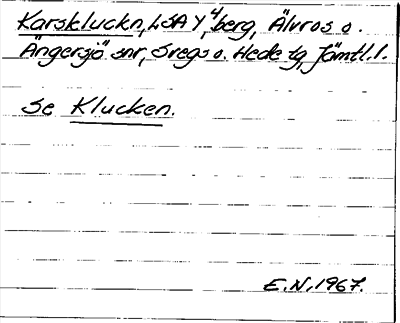 Karskluckn, LSA Y 4, berg, Älvros o.
Ängersjö snr, Svegs o. Hede tg, Jämtl. l.
Se Klucken.
E.N. 1967.